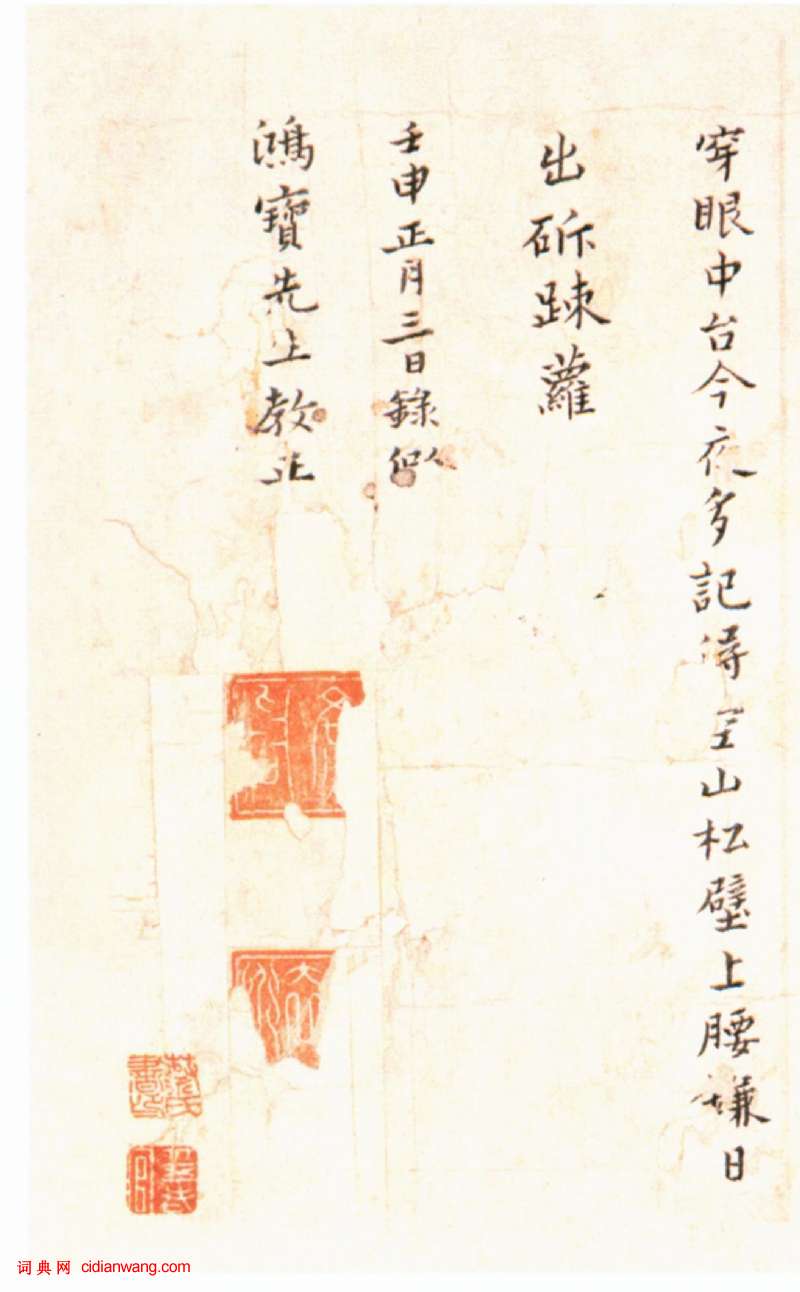 穿眼中台今夜多記得呈山松壁上腰鐮日
出斫踈蘿
壬申正月三日錄似
鴻寶先生教正
词典网 cidianwang.com